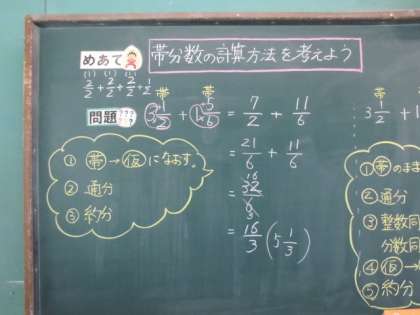 めあて 帯分数の計算方法を考えよう
(1) (1) (1)
2/2 + 2/2 + 2/2 + 1/2
帯 帯
問題 3 1/2 + 1 5/6 = 7/2 + 11/6
= 21/6 + 11/6
= 32/6 16 3
= 16/3 (5 1/3)
① 帯→仮になおす。
② 通分
③ 約分
3 1/2 +
① 帯のまま
② 通分
③ 整数同
分数同
④ 仮→
⑤ 約分